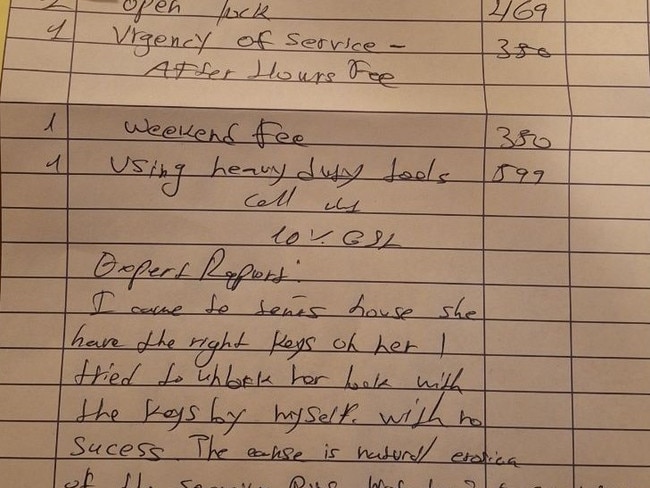 open lock 469
1 Urgency of Service - 380
After Hours Fee
1 Weekend Fee 380
1 Using heavy duty tools 599
Call us
10%
Expert Report:
I came to house she
have the right keys on her I
tried to unlock her lock with
the keys by myself. with no
sucess. The cause is natural
of the